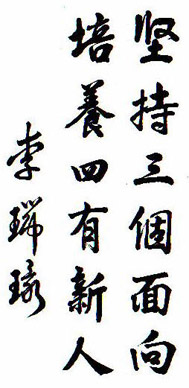 坚持三個面向
培養四有新人
李瑞環